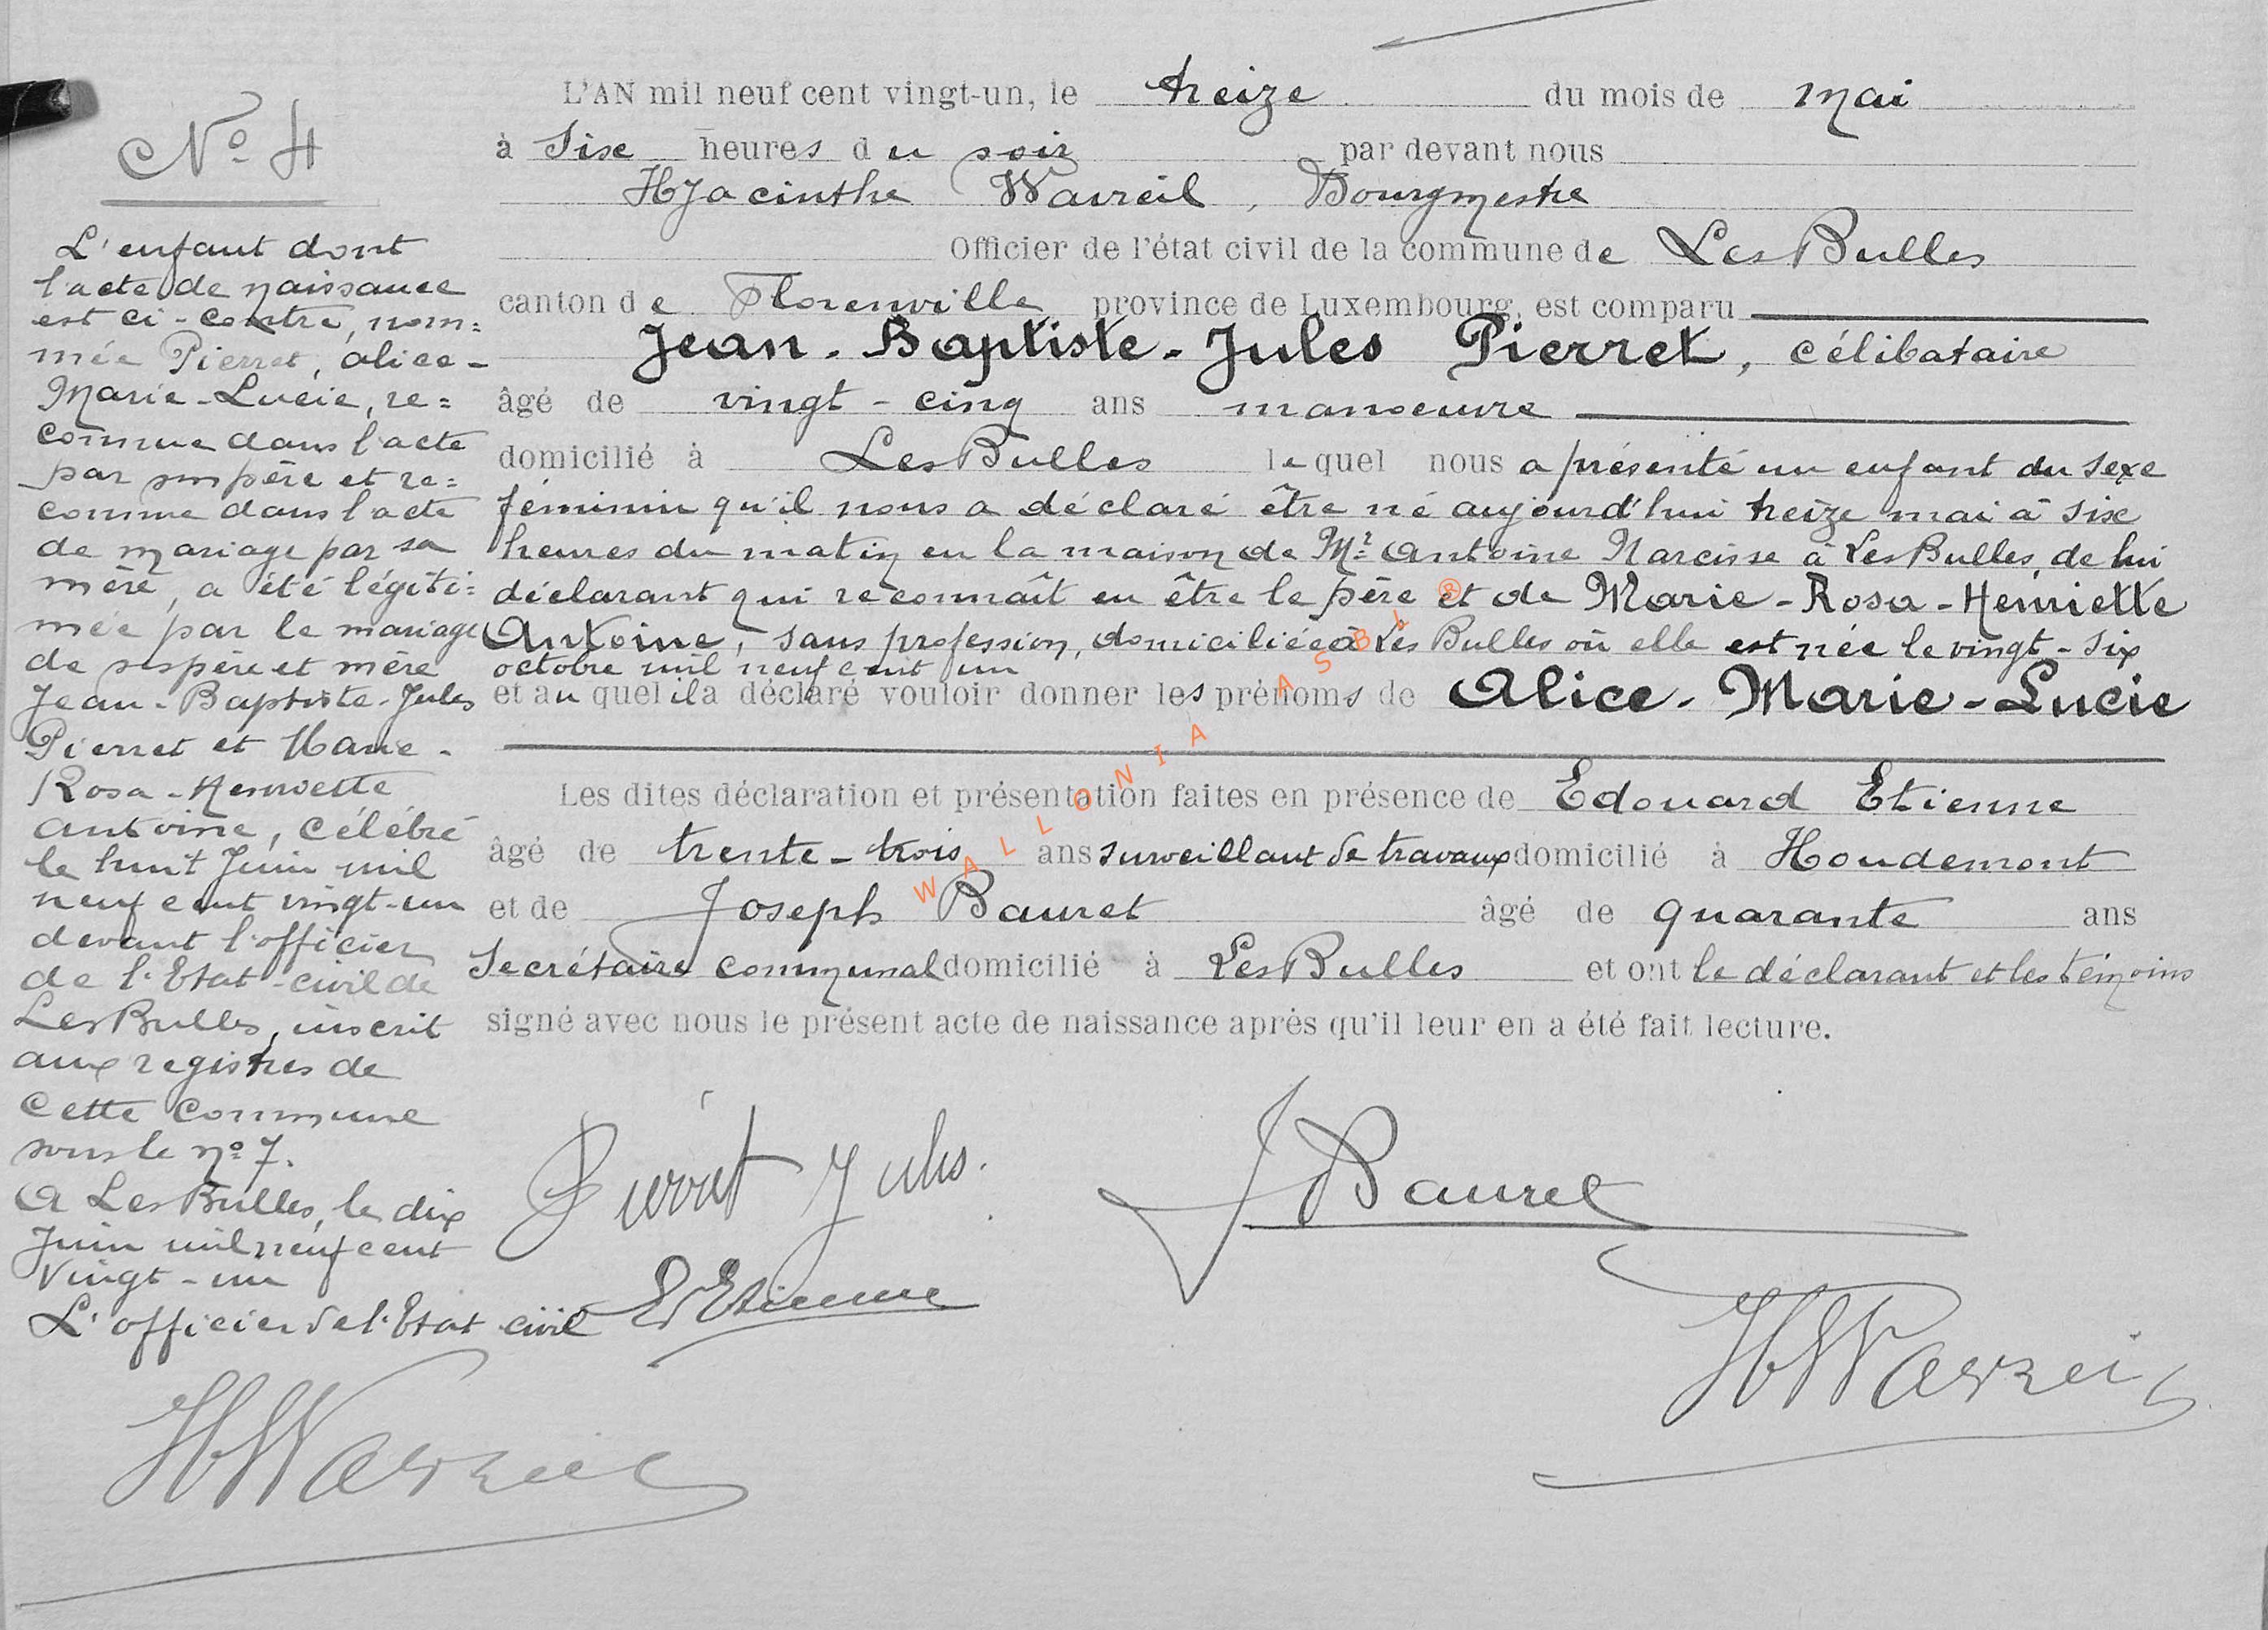 L'AN mil neuf cent vingt-un, le treize du mois de mai
à Six heures du soir par devant nous
Hyacinthe Wavreil, Bourgmestre
Officier de l'état civil de la commune de Les Bulles
canton de Florenville province de Luxembourg, est comparu
Jean-Baptiste-Jules Pierret, célibataire
âgé de vingt-cinq ans manoeuvre
domicilié à Les Bulles lequel nous a présenté un enfant du sexe
féminin qu'il nous a déclaré être né aujourd'hui treize mai à six
heures du matin en la maison de Mr Antoine Narcisse à Les Bulles, de lui
déclarant qui reconnaît en être le père et de Marie-Rosa-Henriette
Antoine, sans profession, domiciliée à Les Bulles où elle est née le vingt-six
octobre mil neuf cent un
et auquel il a déclaré vouloir donner les prénoms de Alice-Marie-Lucie
Les dites déclaration et présentation faites en présence de Edouard Etienne
âgé de trente-trois ans surveillant de travaux domicilié à Houdemont
et de Joseph Bauret âgé de quarante ans
Secrétaire communal domicilié à Les Bulles et ont le déclarant et les témoins
signé avec nous le présent acte de naissance après qu'il leur en a été fait lecture.
Pierret Jules.
J Bauret
E Etienne
H Wavreil
No 4
L'enfant dont
l'acte de naissance
est ci-contre, nom=
mée Pierret, Alice-
Marie-Lucie, re=
connue dans l'acte
par son père et re=
connue dans l'acte
de mariage par sa
mère, a été légiti=
mée par le mariage
de ses père et mère
Jean-Baptiste-Jules
Pierret et Marie-
Rosa-Henriette
Antoine, célébré
le huit Juin mil
neuf cent vingt-un
devant l'officier
de l'Etat-civil de
Les Bulles, inscrit
aux registres de
cette commune
sous le no 7.
A Les Bulles, le dix
Juin mil neuf cent
vingt-un
L'officier de l'Etat civil
H Wavreil
WALLONIA ASBL ®